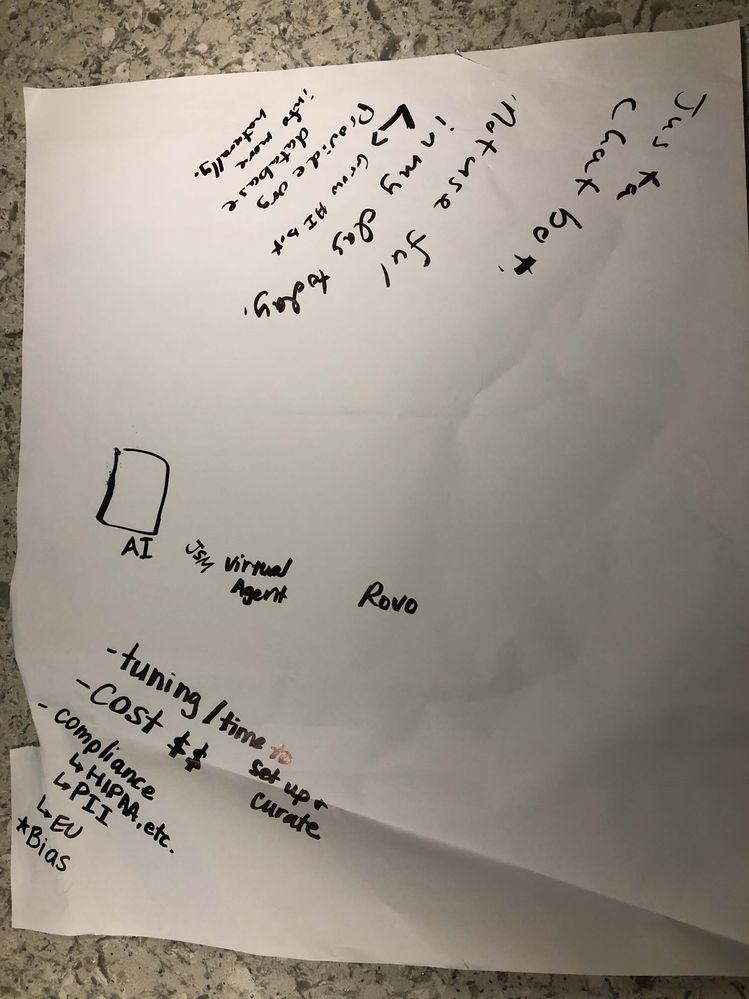 Just a
Chat bot.
Not useful
in my day today.
↳ Grow AI bot
Provide org
database
info more
naturally.
AI
JSM Virtual
Agent
Rovo
- tuning / time to
set up +
curate
- COST $$
- compliance
↳ HIPAA, etc.
↳ PII
↳ EU
* Bias